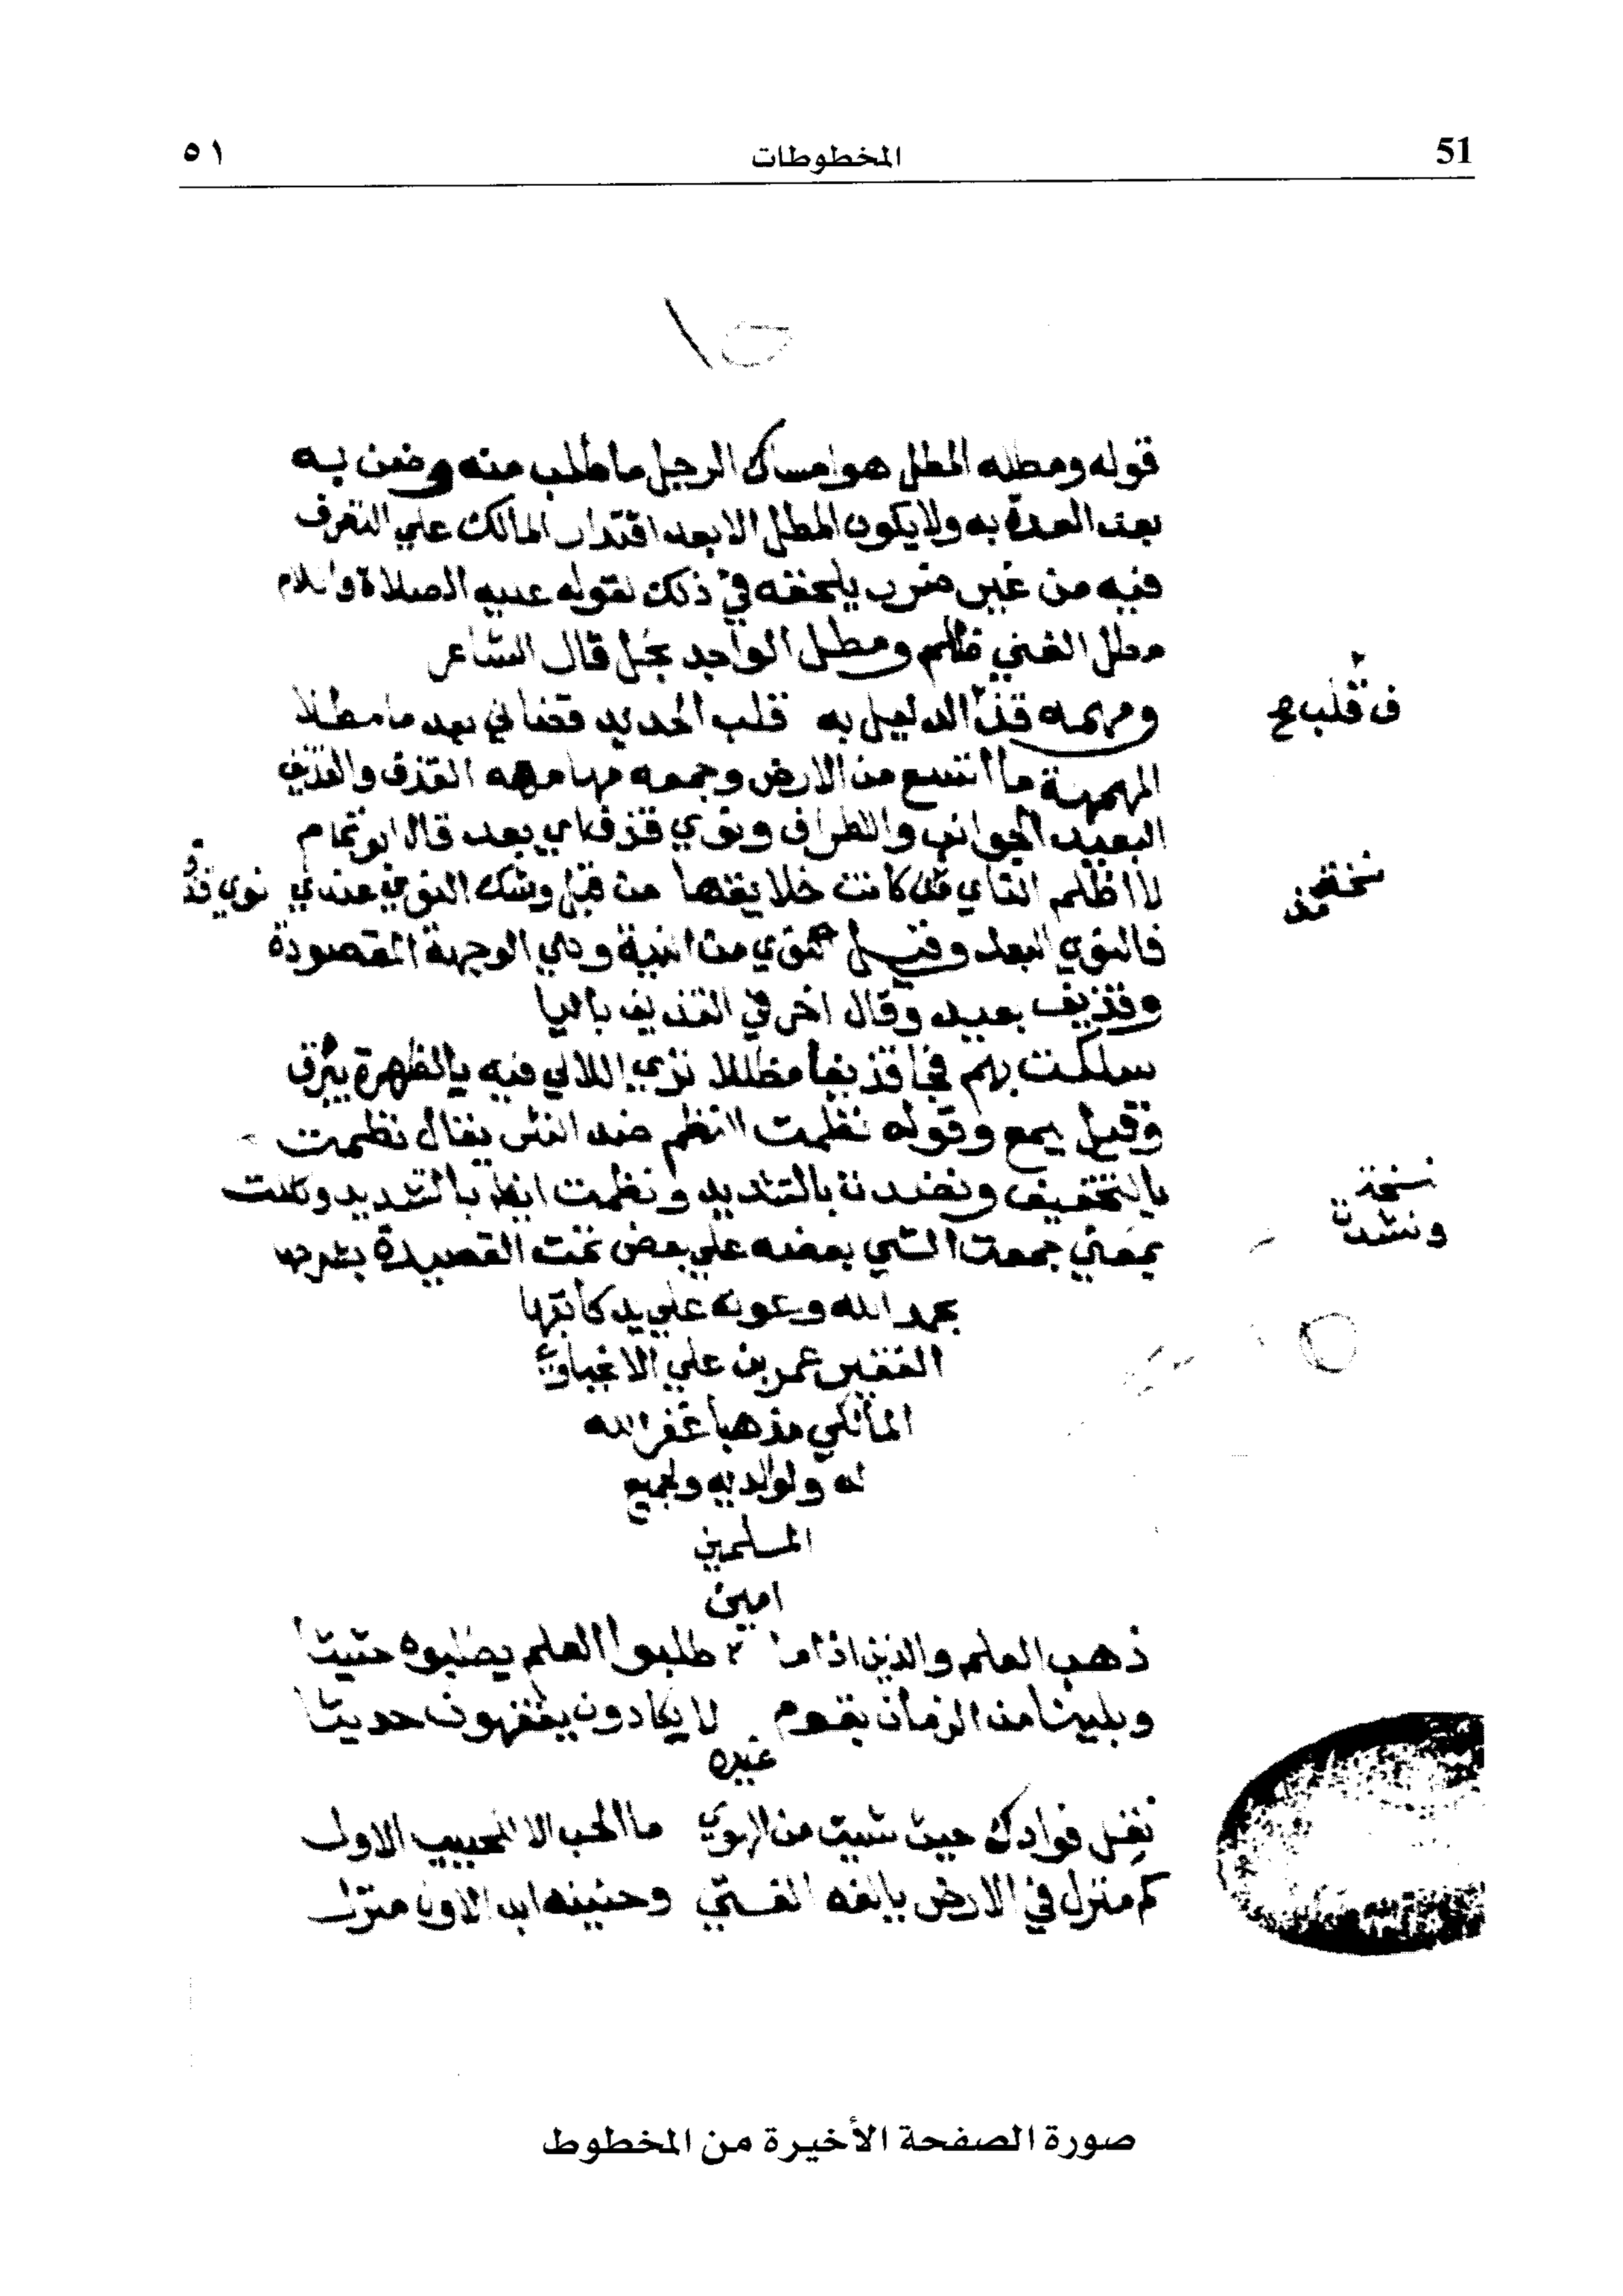 51 المخطوطات ٥١
قوله ومطله المطل هو امساك الرجل ما طلب منه وضن به
بعد العدة به ولا يكون المطل الا بعد اقتدار المالك علي التصرف
فيه من غير ضرر يلحقه في ذلك لقوله عليه الصلاة والسلام
مطل الغني ظلم ومطل الواجد بخل قال الشاعر
ومهمه قذف الدليل به قلب الحديد قضاني بعد ما مطلا
ف قلب ح
المهمهة ما اتسع من الارض وجمعه مهامهه القذف والقذيف
البعيد الجوانب والاطراف ونوي قذف اي بعد قال ابو تمام
لا اظلم الناي قد كانت خلايقها من قبل وشك النوي عندي نوي قذفا
نسخة
فالنوي البعد وقيل النوي من النية وهي الوجهة المقصودة
وقذيف بعيد وقال اخر في القذيف باليا
سلكت بهم فجا قذيفا مظللا تري اللالي فيه بالظهرة يبرق
وقيل يمع وقوله نظمت النظم ضد النثر يقال نظمت
بالتخفيف ونضدت بالتشديد ونظمت ايضا بالتشديد وكانت
نسخة
ونشدت
بمعني جمعت الشي بعضه علي بعض تمت القصيدة بشرحها
بحمد الله وعونه علي يد كاتبها
الفقير عمر بن علي
المالكي مذهبا غفر الله
له ولوالديه ولجميع
المسلمين
امين
ذهب العلم والذين اذا ما طلبوا العلم يطلبوه حثيثا
وبلينا من الزمان بقوم لا يكادون يفقهون حديثا
غيره
نقل فوادك حيث شيت من الهوي ما الحب الا للحبيب الاول
كم منزل في الارض يالفه الفتي وحنينه ابدا لاول منزل
صورة الصفحة الأخيرة من المخطوط